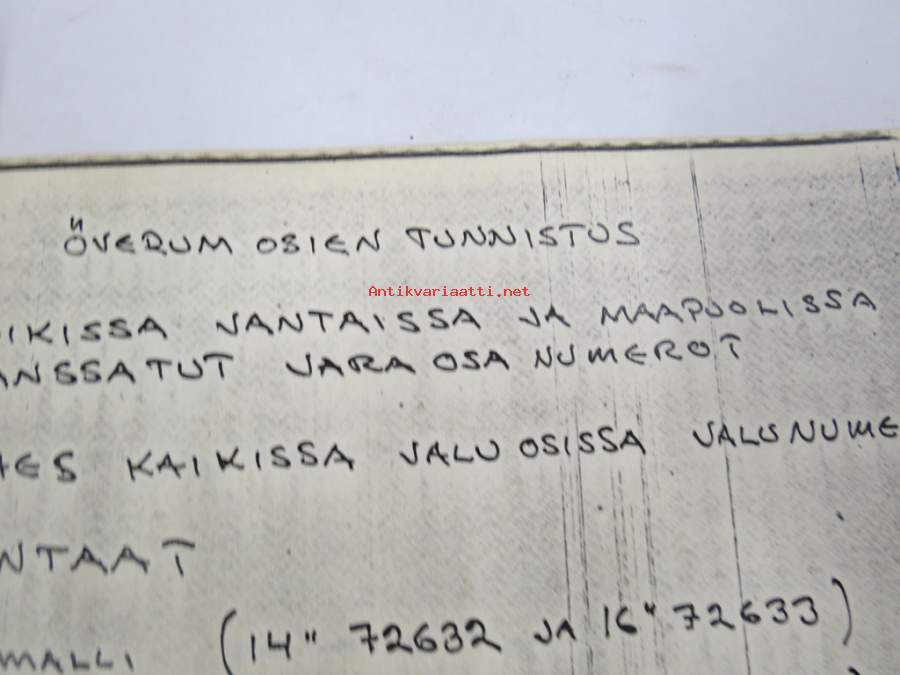 ÖVERUM OSIEN TUNNISTUS
Antikvariaatti.net
IKISSA VANTAISSA JA MAAPUOLISSA
ANSSATUT VARA OSA NUMEROT
HES KAIKISSA VALU OSISSA VALUNUME
NTAAT
MALLI (14" 72632 JA 16" 72633)